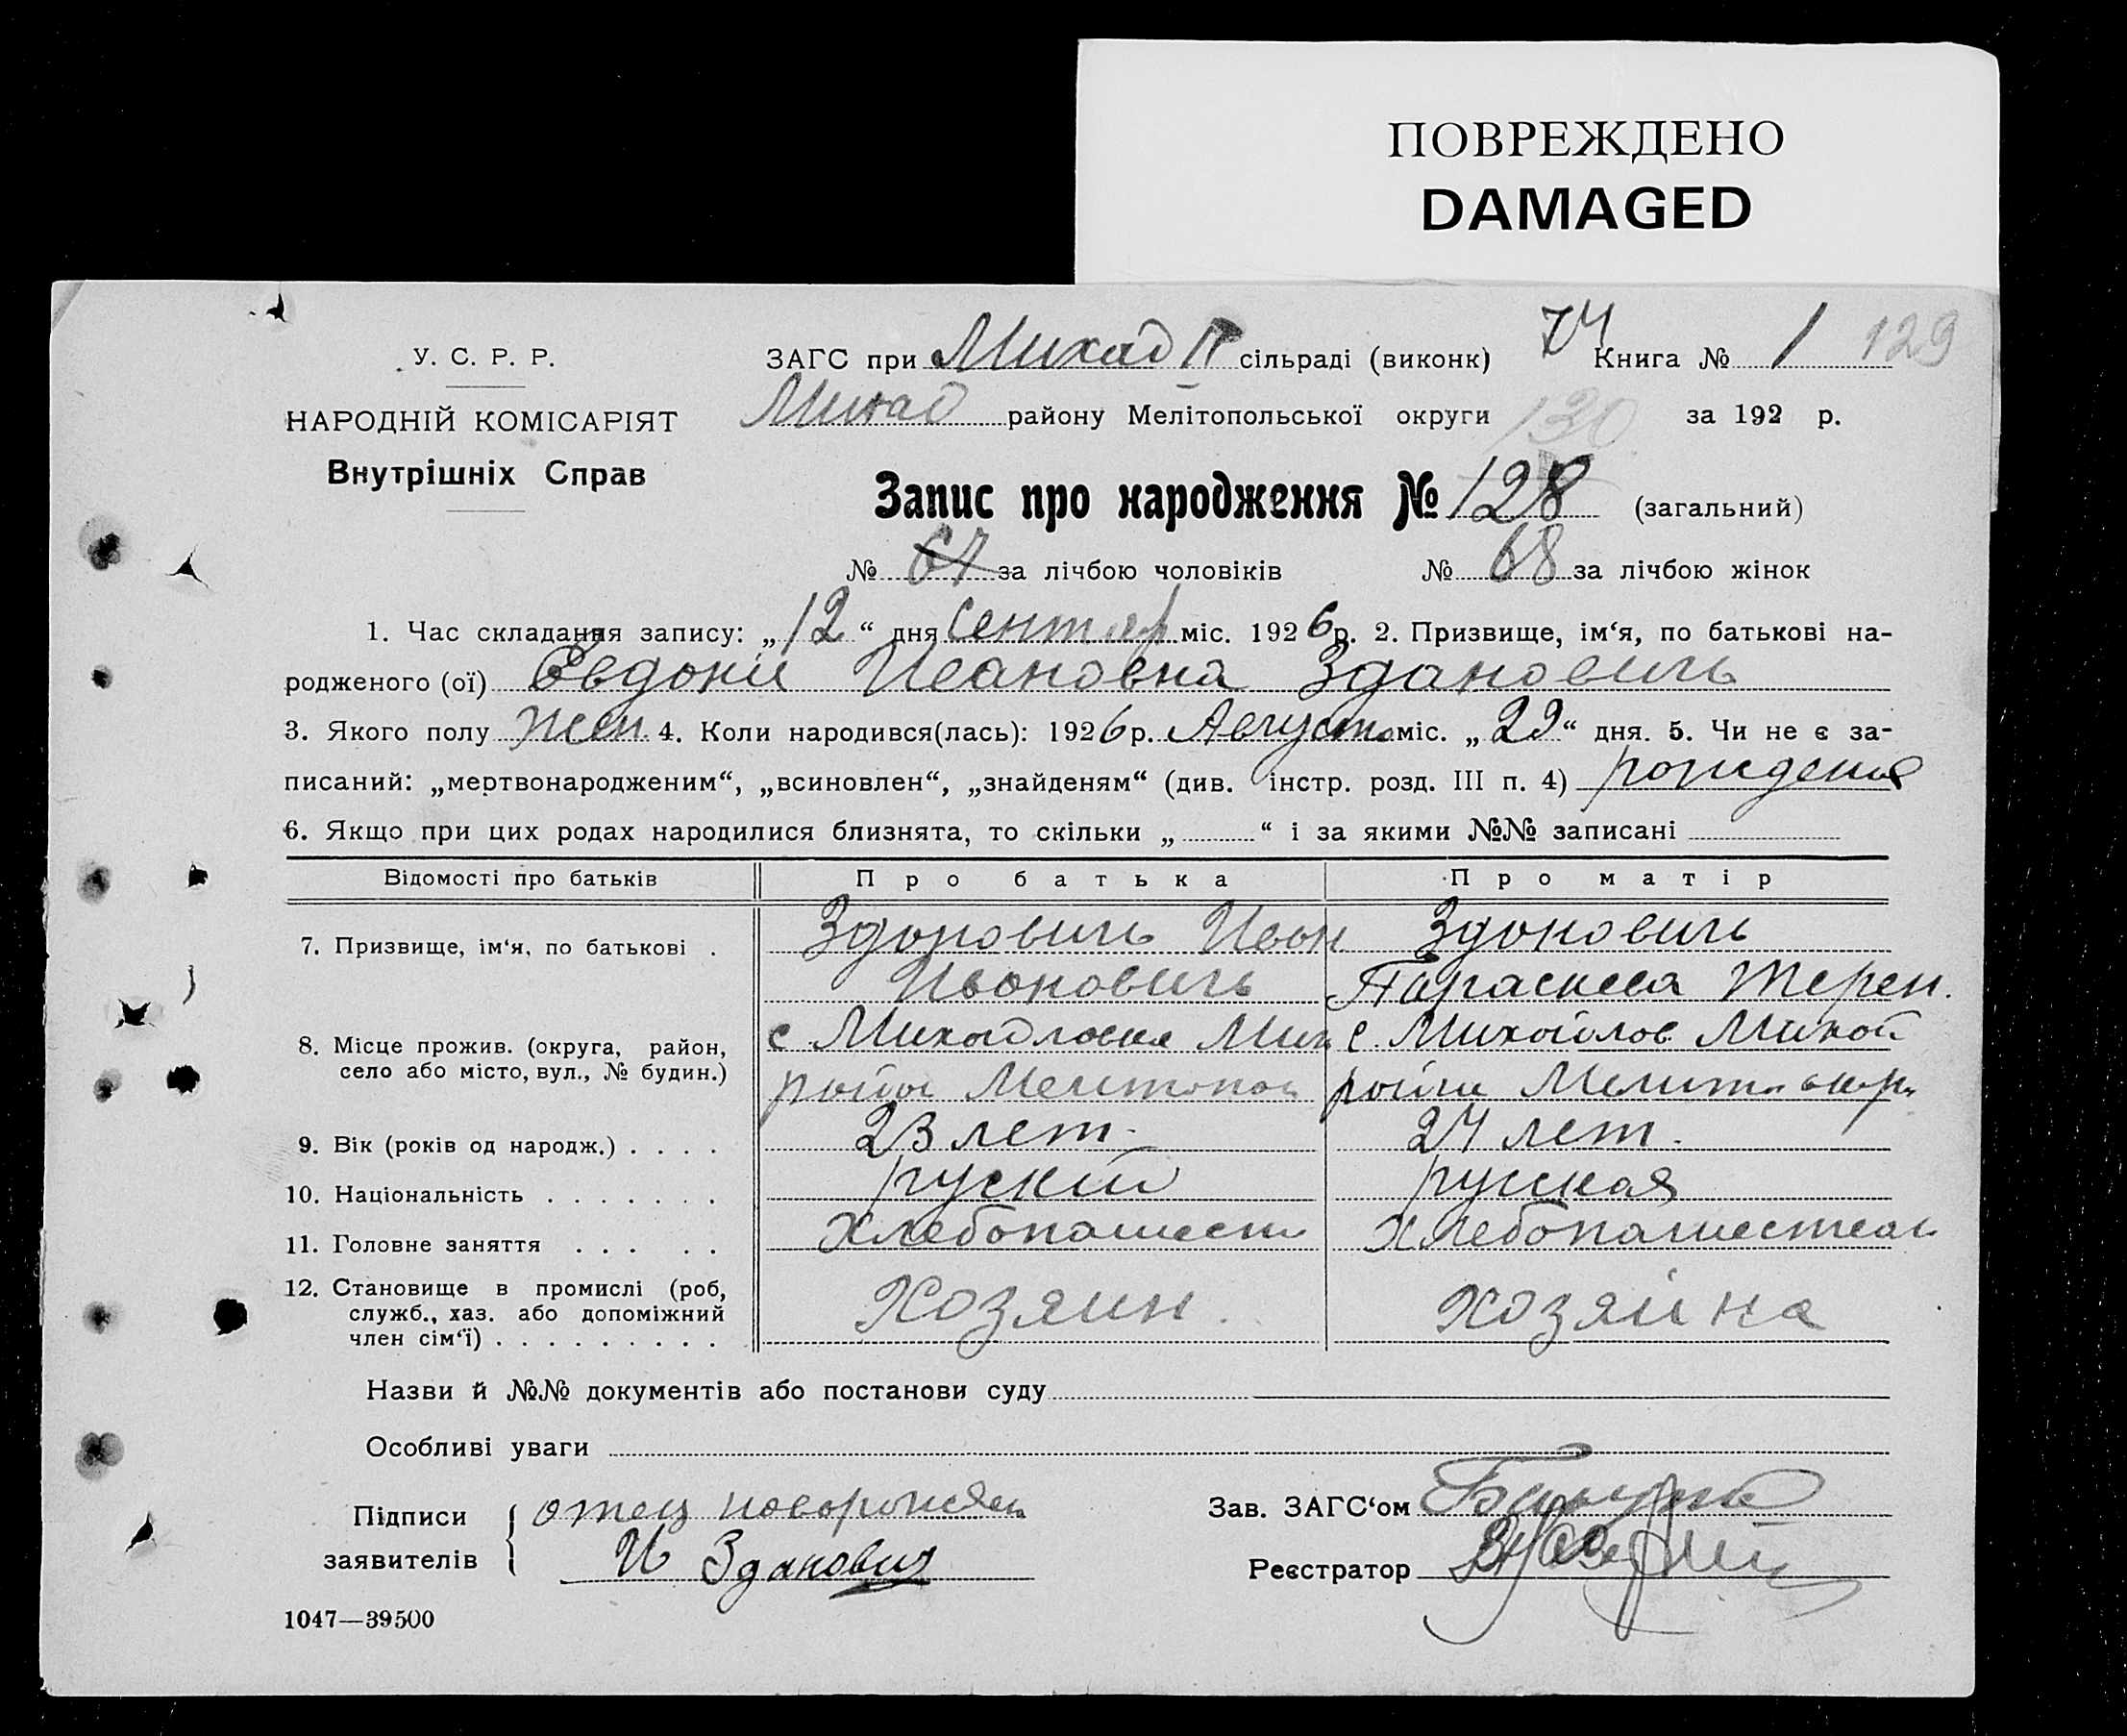 ПОВРЕЖДЕНО
DAMAGED
У. С. Р. Р.
НАРОДНІЙ КОМІСАРІЯТ
Внутрішніх Справ
ЗАГС при Михай II сільраді (виконк) 74 Книга № 1 129
Михай району Мелітопольської округи 130 за 192 р.
Запис про народження № 128 (загальний)
№ 67 за лічбою чоловіків № 68 за лічбою жінок
1. Час складання запису: „12“ дня Сентяр міс. 1926 р. 2. Призвище, ім‘я, по батькові на-
родженого (ої) Евдоки Ивановна Зданович
3. Якого полу жен. 4. Коли народився(лась): 1926 р. Август міс. „29“ дня. 5. Чи не є за-
писаний: „мертвонародженим“, „всиновлен“, „знайденям“ (див. інстр. розд. III п. 4) рождения
6. Якщо при цих родах народилися близнята, то скільки „ “ і за якими №№ записані
Відомості про батьків Про батька Про матір
7. Призвище, ім‘я, по батькові . Здановичь Иван Здановичь
Ивановичь Параскева Терен.
8. Місце прожив. (округа, район, с Михайловка Мих с. Михайлов Михай
село або місто, вул., № будин.) район Мелитопол район Мелит. окр
9. Вік (років од народж.) . . . . 23 лет. 24 лет.
10. Національність . . . . . . . руский русская
11. Головне заняття . . . . . Хлебопашест Хлебопашество
12. Становище в промислі (роб,
служб., хаз. або допоміжний Хозяин. Хозяйка
член сім‘ї) . . . . . . . . .
Назви й №№ документів або постанови суду
Особливі уваги
Підписи отец новорожден Зав. ЗАГС‘ом
заявителів И Зданович Реєстратор
1047—39500